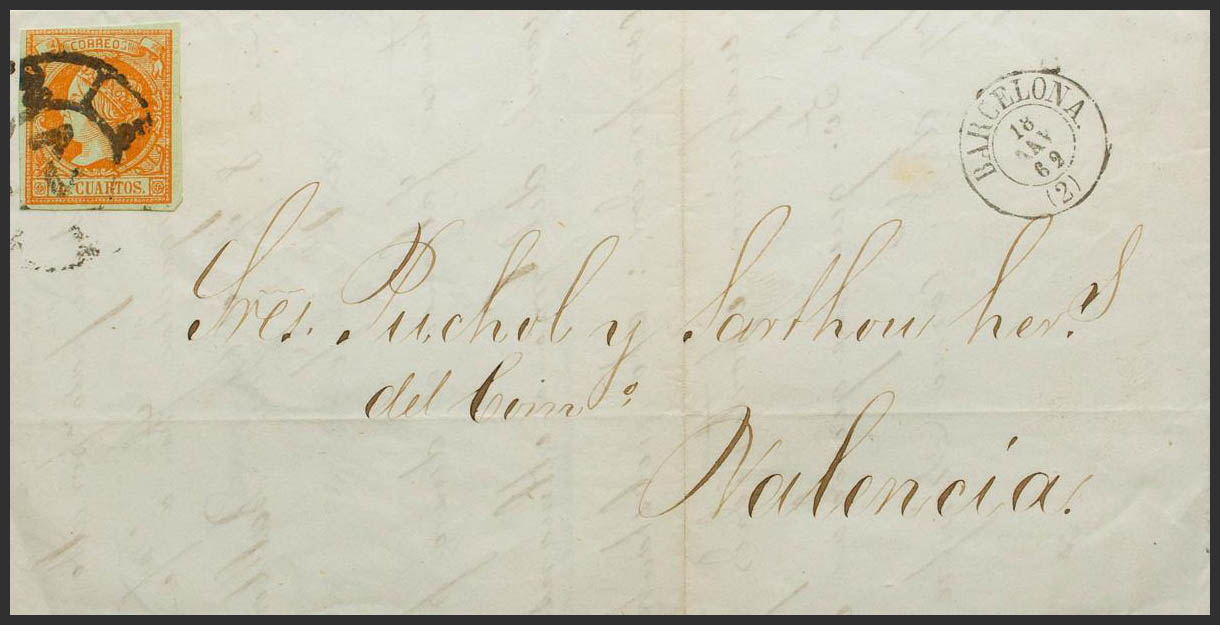 CORREOS
CUARTOS.
BARCELONA.
18
62
(2)
Sres. Puchol y Sarthou her.s
del Com.o
Valencia.